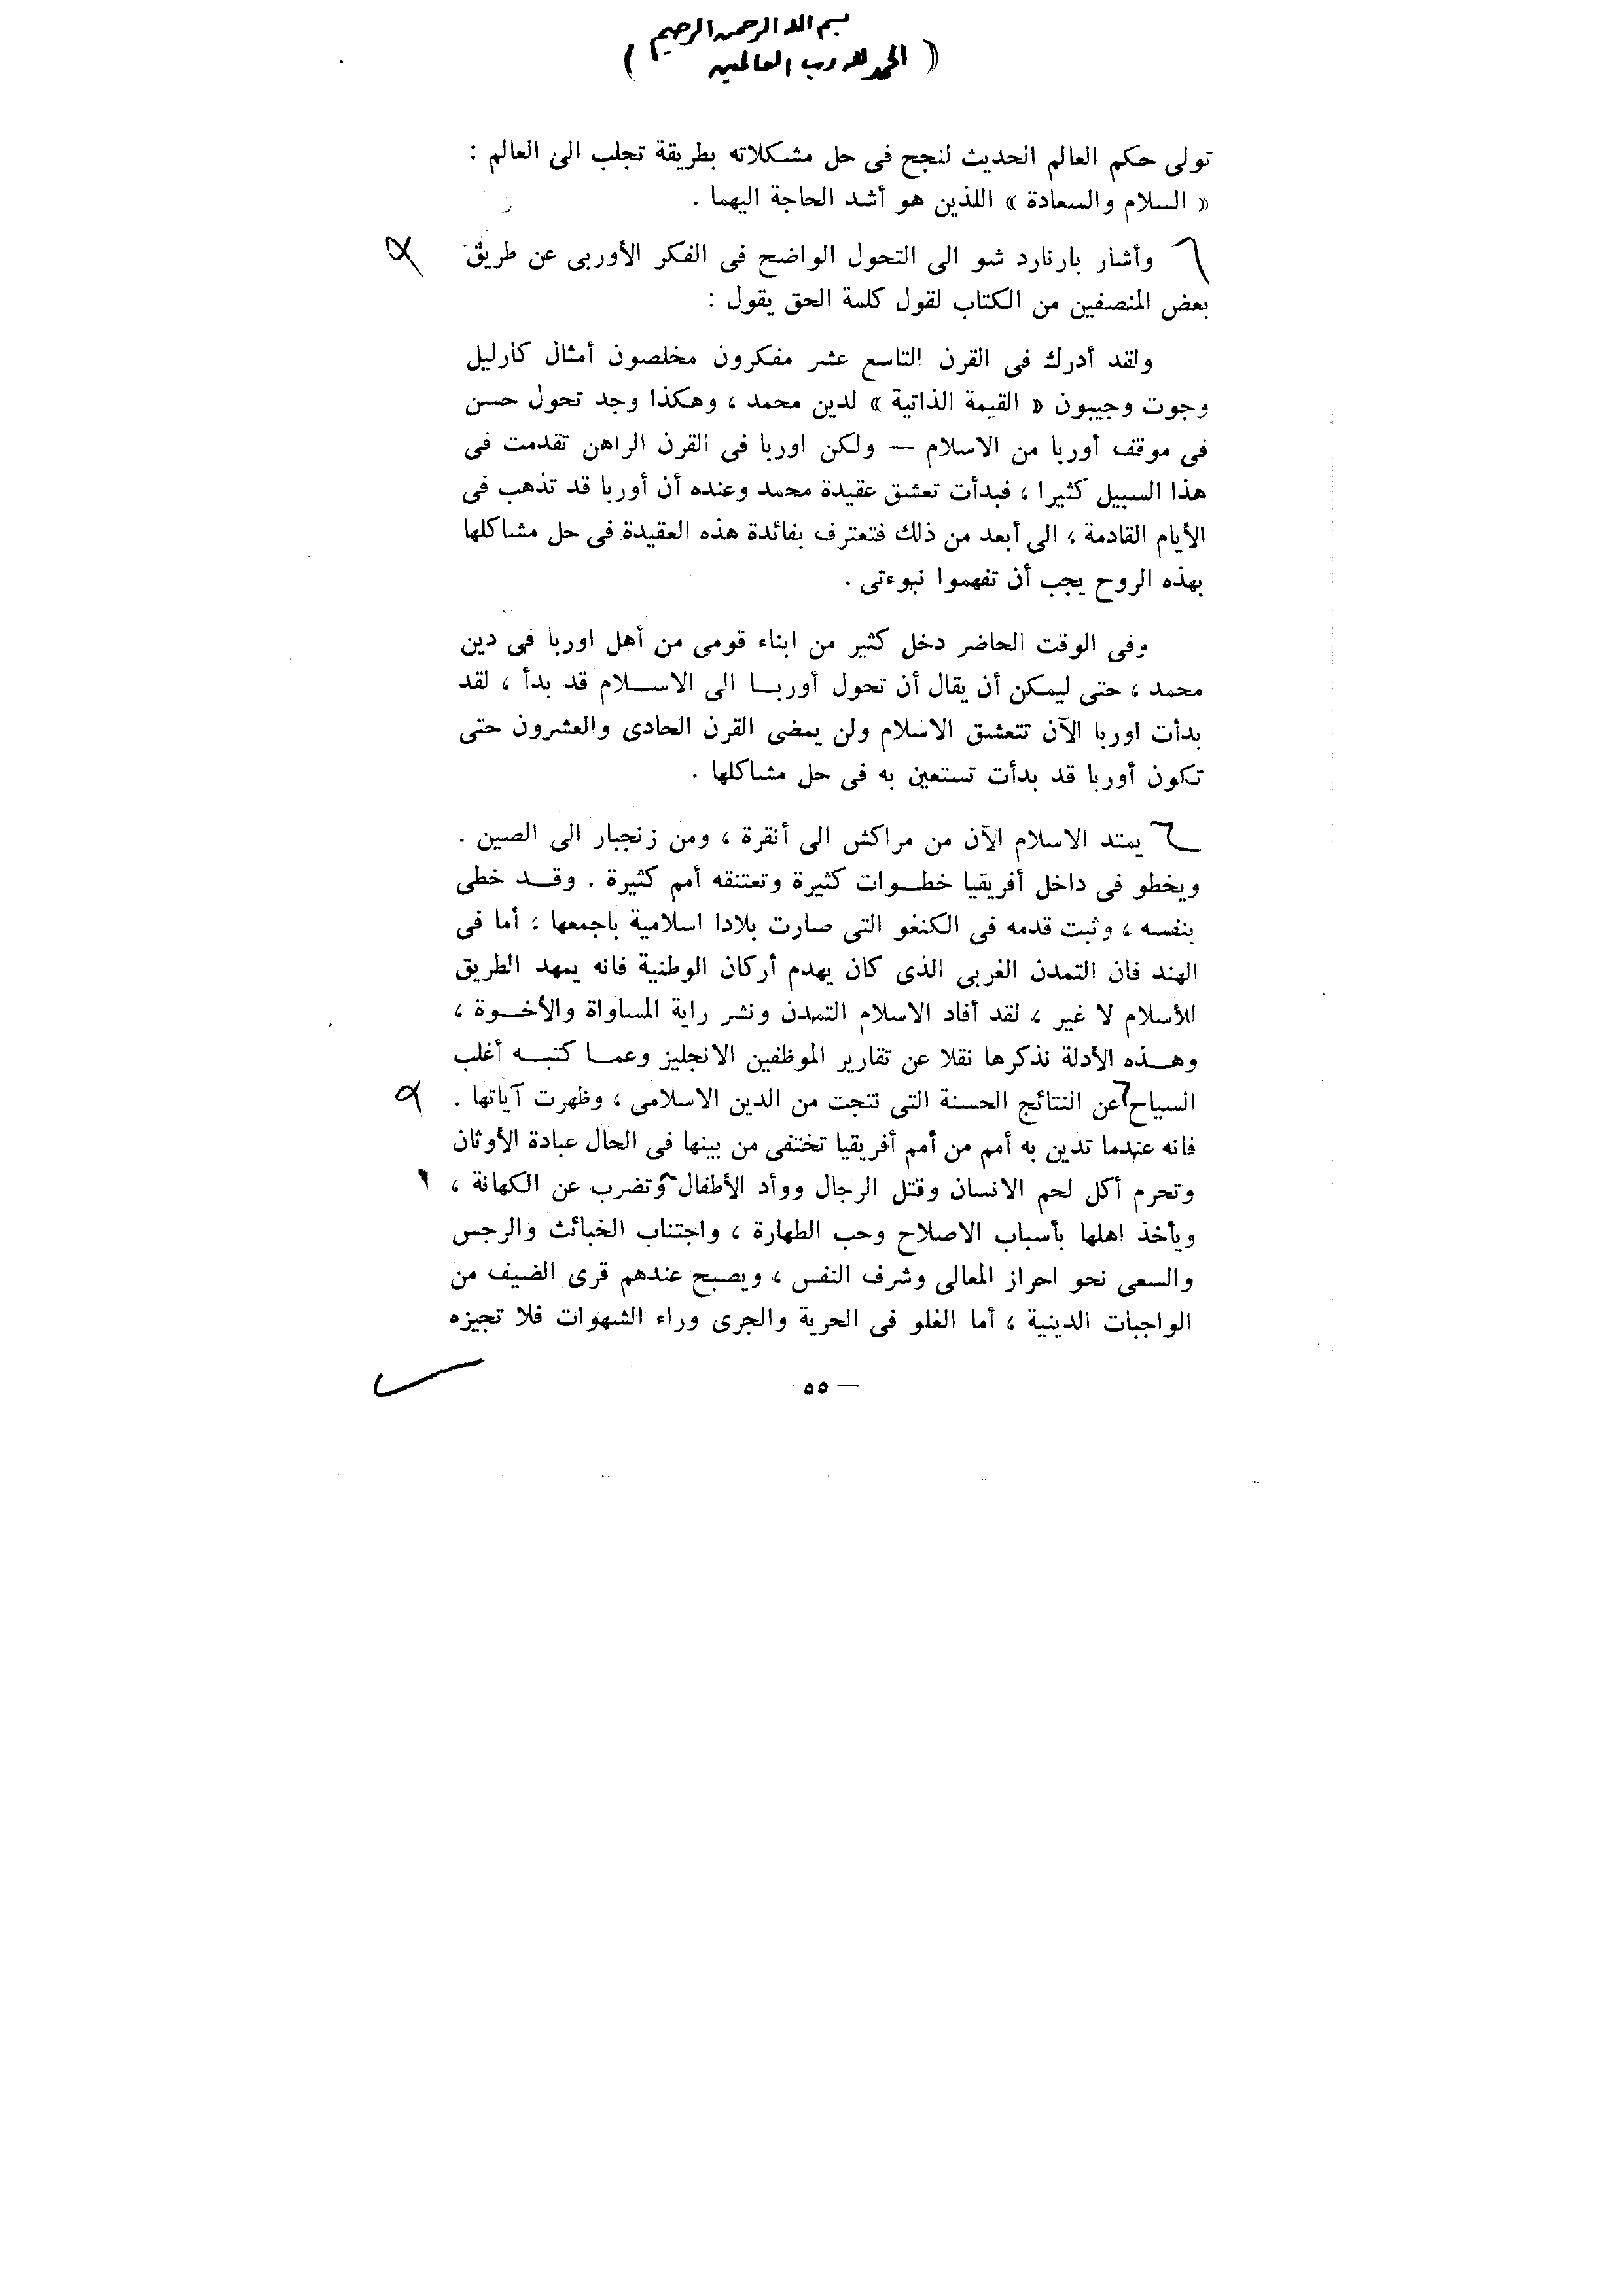 بسم الله الرحمن الرحيم
( الحمد لله رب العالمين )
تولى حكم العالم الحديث لنجح فى حل مشكلاته بطريقة تجلب الى العالم :
« السلام والسعادة » اللذين هو أشد الحاجة اليهما .
وأشار بارنارد شو الى التحول الواضح فى الفكر الأوربى عن طريق
بعض المنصفين من الكتاب لقول كلمة الحق يقول :
ولقد أدرك فى القرن التاسع عشر مفكرون مخلصون أمثال كارليل
وجوت وجيبون « القيمة الذاتية » لدين محمد ، وهكذا وجد تحول حسن
فى موقف أوربا من الاسلام — ولكن اوربا فى القرن الراهن تقدمت فى
هذا السبيل كثيرا ، فبدأت تعشق عقيدة محمد وعنده أن أوربا قد تذهب فى
الأيام القادمة ، الى أبعد من ذلك فتعترف بفائدة هذه العقيدة فى حل مشاكلها
بهذه الروح يجب أن تفهموا نبوءتى .
وفى الوقت الحاضر دخل كثير من ابناء قومى من أهل اوربا فى دين
محمد ، حتى ليمكن أن يقال أن تحول أوربا الى الاسلام قد بدأ ، لقد
بدأت اوربا الآن تتعشق الاسلام ولن يمضى القرن الحادى والعشرون حتى
تكون أوربا قد بدأت تستعين به فى حل مشاكلها .
يمتد الاسلام الآن من مراكش الى أنقرة ، ومن زنجبار الى الصين .
ويخطو فى داخل أفريقيا خطوات كثيرة وتعتنقه أمم كثيرة . وقد خطى
بنفسه ، وثبت قدمه فى الكنغو التى صارت بلادا اسلامية باجمعها ؛ أما فى
الهند فان التمدن الغربى الذى كان يهدم أركان الوطنية فانه يمهد الطريق
للأسلام لا غير ، لقد أفاد الاسلام التمدن ونشر راية المساواة والأخوة ،
وهذه الأدلة نذكرها نقلا عن تقارير الموظفين الانجليز وعما كتبه أغلب
السياح عن النتائج الحسنة التى نتجت من الدين الاسلامى ، وظهرت آياتها .
فانه عندما تدين به أمم من أمم أفريقيا تختفى من بينها فى الحال عبادة الأوثان
وتحرم أكل لحم الانسان وقتل الرجال ووأد الأطفال وتضرب عن الكهانة ،
ويأخذ اهلها بأسباب الاصلاح وحب الطهارة ، واجتناب الخبائث والرجس
والسعى نحو احراز المعالى وشرف النفس ، ويصبح عندهم قرى الضيف من
الواجبات الدينية ، أما الغلو فى الحرية والجرى وراء الشهوات فلا تجيزه
— ٥٥ —